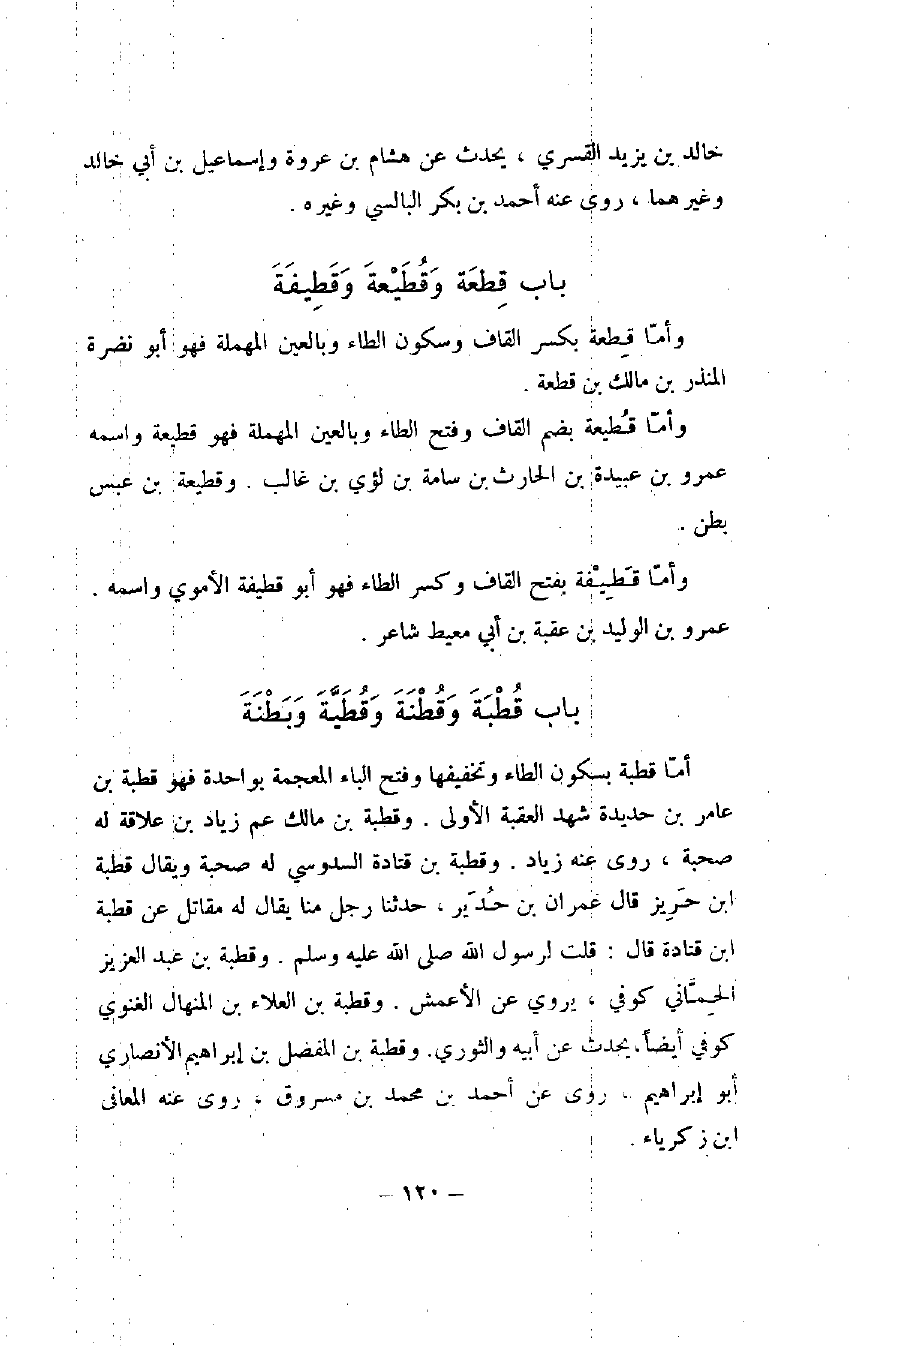 خالد بن يزيد القسري ، يحدث عن هشام بن عروة وإسماعيل بن أبي خالد
وغيرهما ، روى عنه أحمد بن بكر البالسي وغيره .
باب قِطعَة وَقُطَيْعةَ وَقَطِيفَةَ
وأمّا قِطعة بكسر القاف وسكون الطاء وبالعين المهملة فهو أبو نضرة
المنذر بن مالك بن قطعة .
وأمّا قُطيعة بضم القاف وفتح الطاء وبالعين المهملة فهو قطيعة واسمه
عمرو بن عبيدة بن الحارث بن سامة بن لؤي بن غالب . وقطيعة بن عبس
بطن .
وأمّا قَطِيْفة بفتح القاف وكسر الطاء فهو أبو قطيفة الأموي واسمه .
عمرو بن الوليد بن عقبة بن أبي معيط شاعر .
باب قُطْبَةَ وَقُطْنَةَ وَقُطَيَّةَ وَبَطْنَةَ
أمّا قطبة بسكون الطاء وتخفيفها وفتح الباء المعجمة بواحدة فهو قطبة بن
عامر بن حديدة شهد العقبة الأولى . وقطبة بن مالك عم زياد بن علاقة له
صحبة ، روى عنه زياد . وقطبة بن قتادة السدوسي له صحبة ويقال قطبة
ابن حَرِيز قال عمران بن حُدَير ، حدثنا رجل منا يقال له مقاتل عن قطبة
ابن قتادة قال : قلت لرسول الله صلى الله عليه وسلم . وقطبة بن عبد العزيز
الحِمَّاني كوفي ، يروي عن الأعمش . وقطبة بن العلاء بن المنهال الغنوي
كوفي أيضاً، يحدث عن أبيه والثوري. وقطبة بن المفضل بن إبراهيم الأنصاري
أبو إبراهيم ، روى عن أحمد بن محمد بن مسروق ، روى عنه المعافى
ابن زكرياء .
– ١٢٠ –